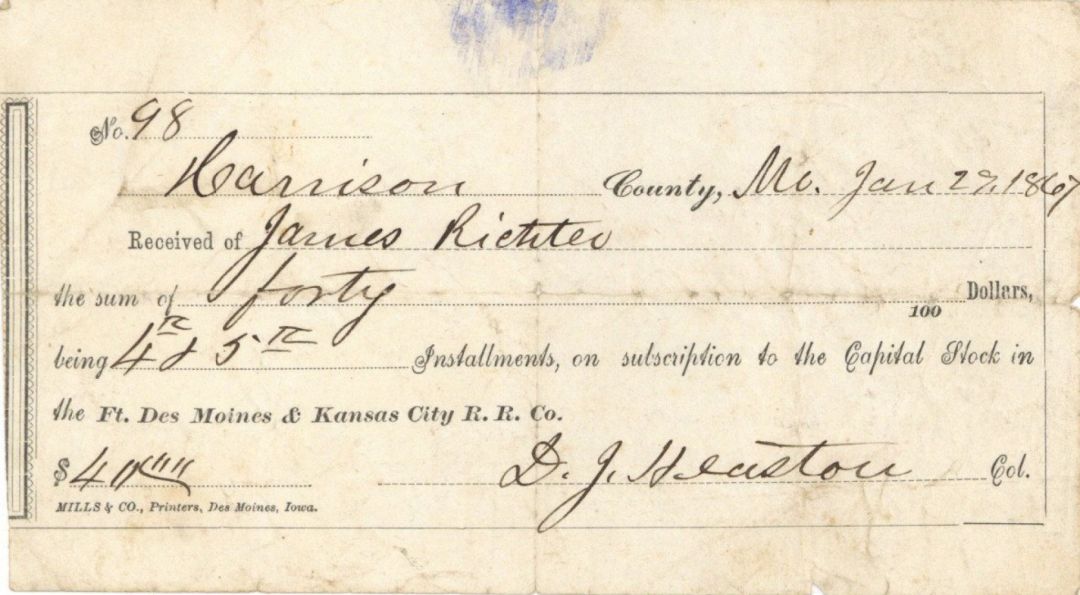 No. 98
Harrison County, Mo. Jan 29, 1867
Received of James Richter
the sum of forty 100 Dollars,
being 4th & 5th Installments, on subscription to the Capital Stock in
the Ft. Des Moines & Kansas City R. R. Co.
$ D. J. Heaston Col.
MILLS & CO., Printers, Des Moines, Iowa.